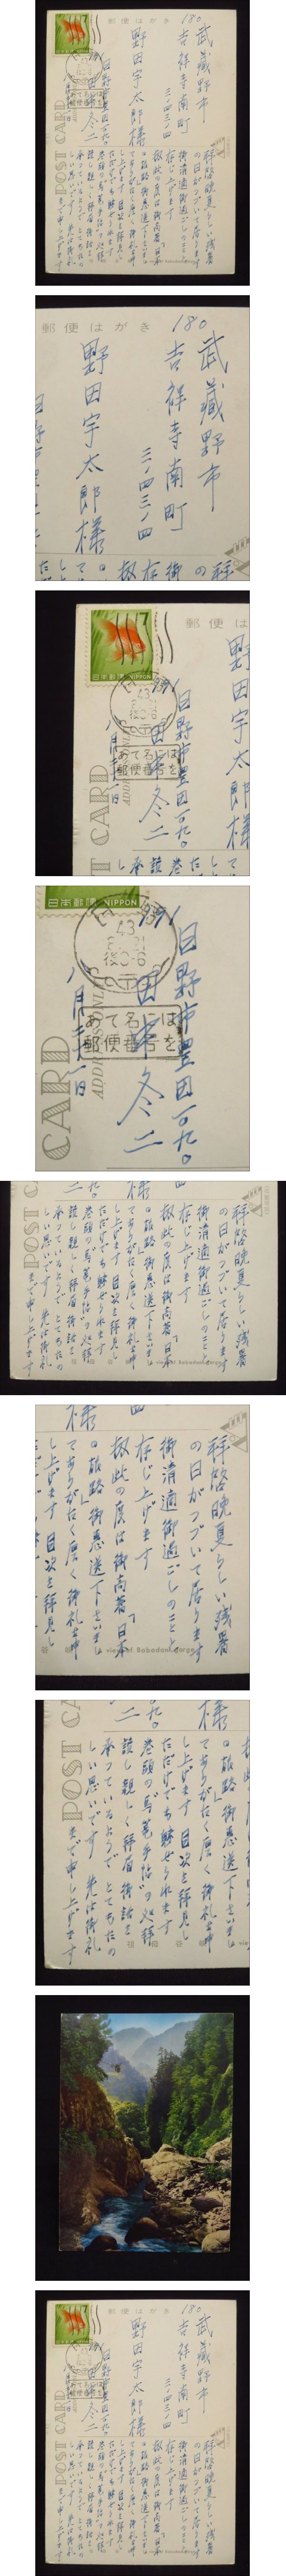 郵便はがき
180
武蔵野市
吉祥寺南町
三ノ四三ノ四
野田宇太郎様
7
日本郵便 NIPPON
43
後0-6
あて名には
郵便番号を
POST CARD
ADDRESS ONLY
日野市豊田一〇九〇
田中冬二
八月二十一日
拝啓 晩夏らしい残暑
の日がつづいて居ります
御清適御過ごしのことと
存じ上げます
扨此の度は御高著「日本
の旅路」御恵送下さいまし
てありがたく厚く御礼を申
し上げます 目次を拝見し
ただけでも魅せられます
巻頭の
談し親しく拝眉御話を
承っているようで とてもたの
しい思いです 先は御礼
まで申し上げます
view of Babadani gorge